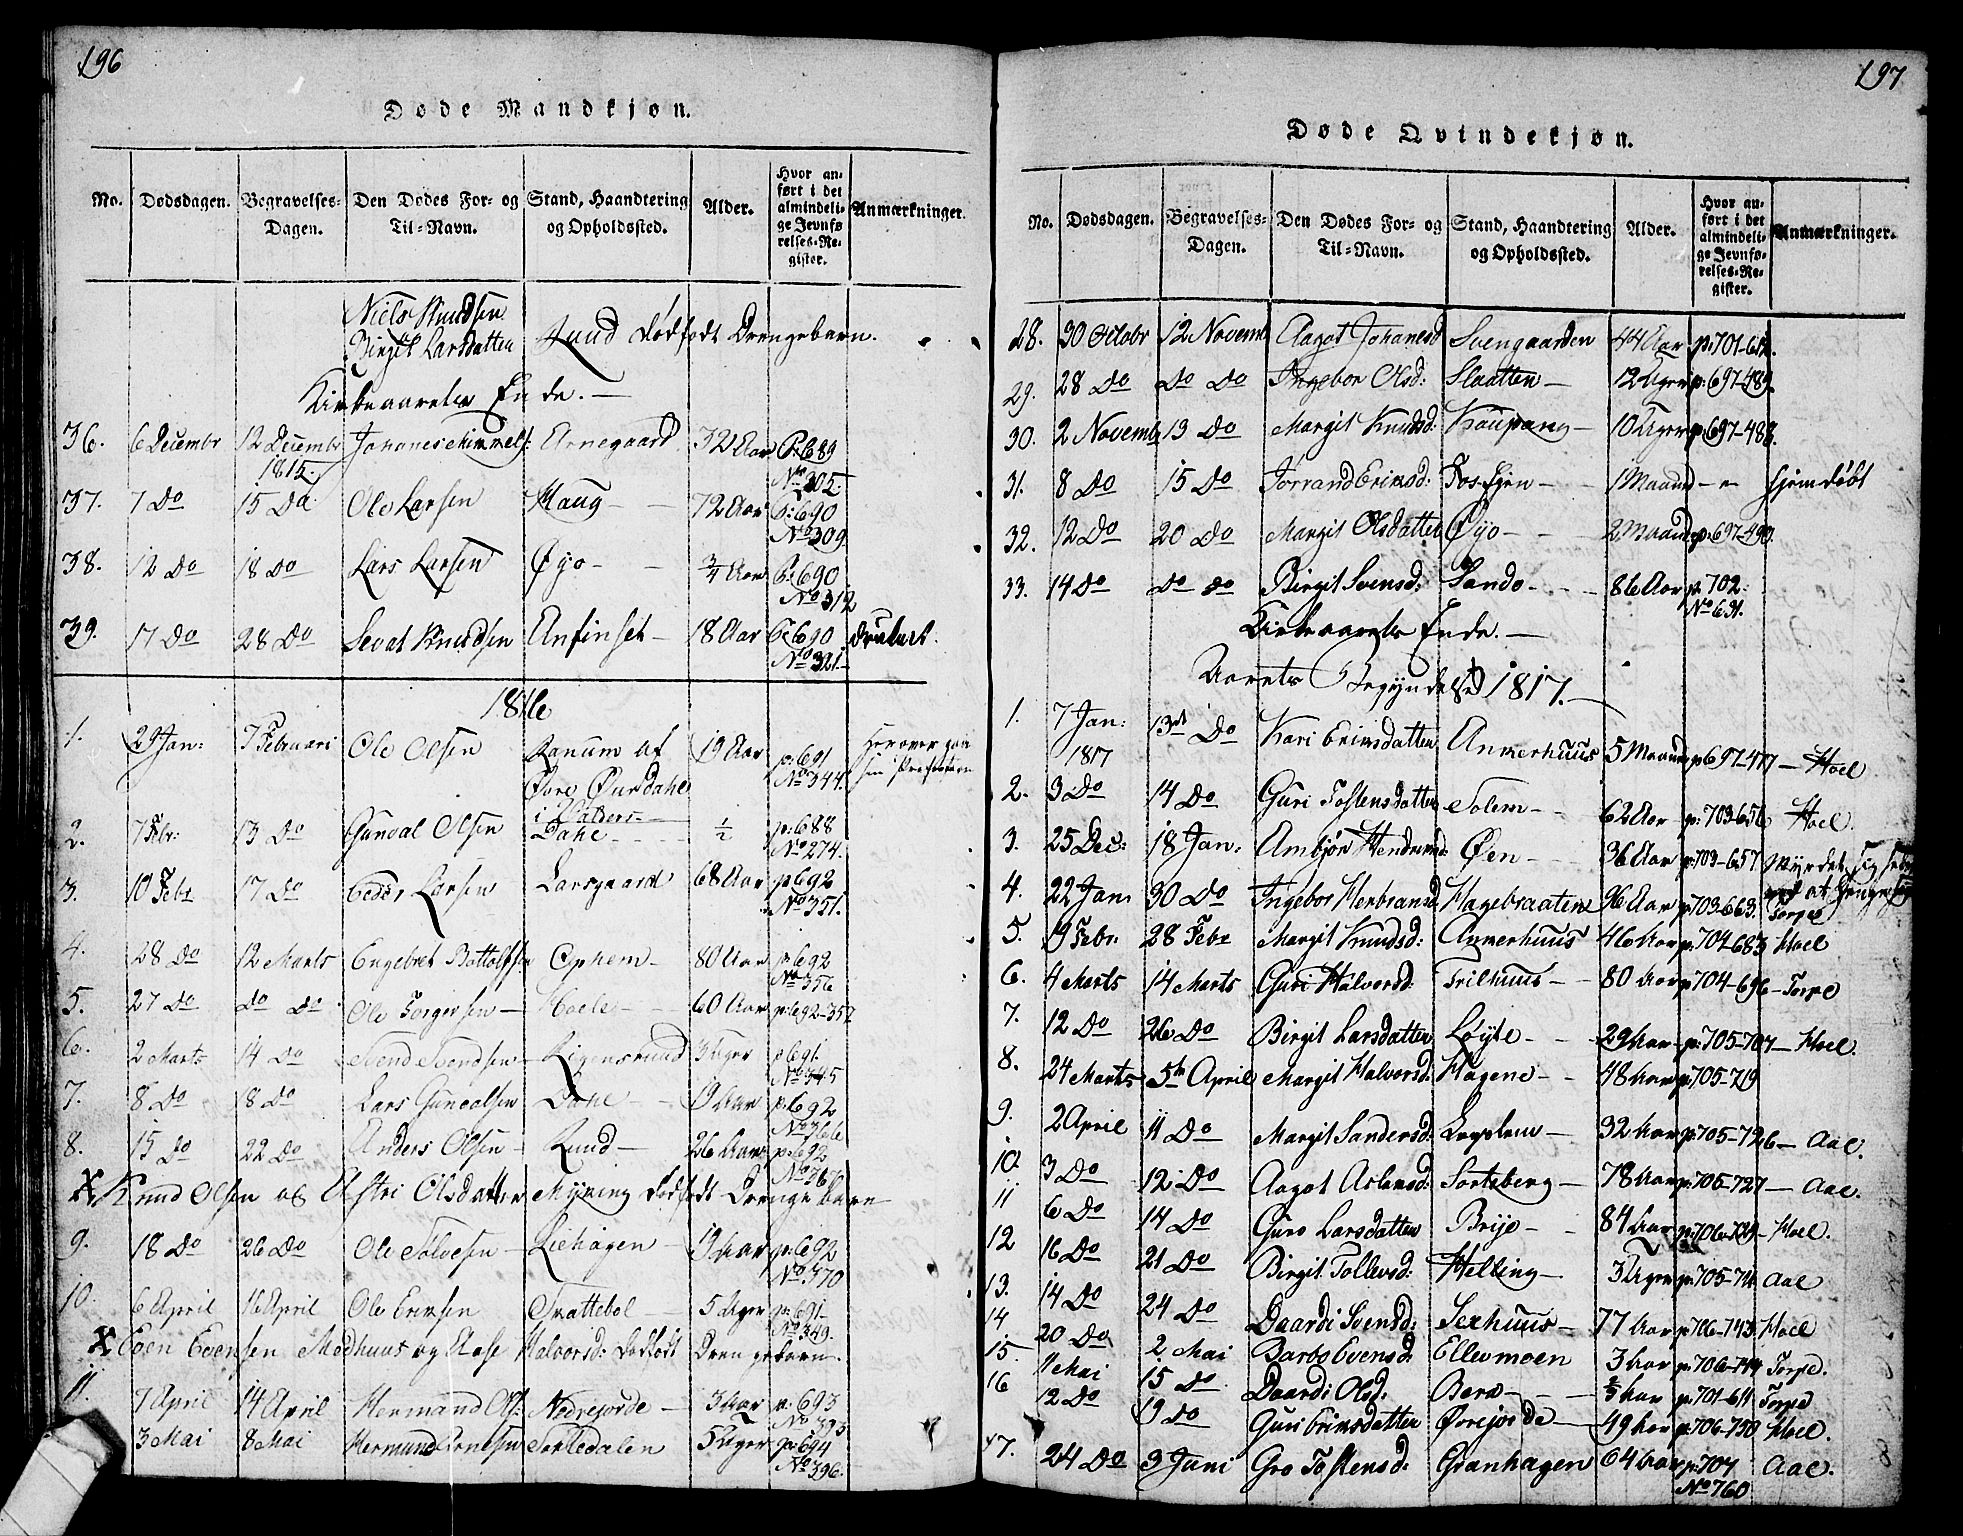 196
Døde Mandkjøn.
No. Dødsdagen. Begravelses-Dagen. Den Dødes For- og Til-Navn. Stand, Haandtering og Opholdssted. Alder. Hvor anført i det almindelige Jevnførelses-Register. Anmærkninger.
Niels Knudsen
Birgit Larsdatten Rund dødfødt Drengebarn.
Kirkeaarets Ende.
36. 6 Decembr 12 Decembr 1815 Johanes Himmels: Arnegaard 32 Aar P: 689 No 305
37. 7 Do 15 Do Ole Larsen Haug 72 Aar P: 690 No 309.
38. 12 Do 18 Do Lars Larsen Øyo 3/4 Aar P: 690 No 312
39. 17 Do 28 Do Sevat Knudsen Anfinset 18 Aar P: 690 No 321 druknet.
1816
1. 29 Jan: 7 Februari Ole Olsen Ranum af Øvre Øursdahl i Valders 19 Aar p: 691 No 344.
2. 7 Febr: 13 Do Gunval Olsen Dahl 1/2 p: 688 No 274.
3. 10 Febr 17 Do Peder Larsen Larsgaard 68 Aar p 692 No 351.
4. 28 Do 12 Marts Engebret Bottolfsen Ophem 80 Aar p: 692 No 356
5. 27 Do Do Do Ole Torgersen Hoele 60 Aar p: 692-357
6. 2 Marts 14 Do Svend Svendsen Rigensrund 3 Uger p 691. No 345
7. 8 Do 18 Do Lars Gunvalsen Dahl 19 Aar p: 692 No 366
8. 15 Do 22 Do Anders Olsen Rund 26 Aar p: 692 No 367
X Knud Olsen og Astri Olsdatter Myking dødfødt Drengebarn
9. 18 Do 26 Do Ole Tolvesen Liehagen 19 Aar p: 692 No 370
10. 6 April 16 April Ole Ericsen Trattebol 5 Uger p: 691 No 349.
X Even Evensen Medhuus og Aase Halvorsd: dødfødt Drengebarn.
11. 7 April 14 April Hermand Ols: Nedrejorde 3 Aar p: 693 No 393
3 Mai 8 Mai Hermund Arnesen Sortedalen 5 Uger p: 694 No 396.
197
Døde Qvindekjøn.
No. Dødsdagen. Begravelses-Dagen. Den Dødes For- og Til-Navn. Stand, Haandtering og Opholdssted. Alder. Hvor anført i det almindelige Jevnførelses-Register. Anmærkninger.
28. 30 Octobr 12 Novemb Aagot Johanesd Svengaarden 44 Aar p: 701-
29. 28 Do Do Do Ingebor Olsd: Slaatten 12 Uger p: 697-489.
30. 2 Novemb 13 Do Margit Knudsd: Kaupang 10 Uger p: 697-488.
31. 8 Do 15 Do Jørrand Ericsd: Fosshjen 1 Maaned hjemdøbt
32. 12 Do 20 Do Margit Olsdatter Øyo 2 Maaned p: 697-490.
33. 14 Do Do Do Birgit Svensd: Sando 86 Aar p: 702: No 631.
Kirkeaarets Ende.
Aarets Begyndelse 1817.
1. 7 Jan: 1817 13de Do Kari Ericsdatten Ankerhuus 5 Maaned p 697-477 Hoel
2. 3 Do 14 Do Guri Tostensdatten Solem 62 Aar p: 703-656 Hoel.
3. 25 Dec: 18 Jan: Ambjør Hendricsd Øen 36 Aar p: 703-657 Myrdet sig selv ved at hænge sig
4. 22 Jan 30 Do Ingebor Herbransd Hagebraaten 96 Aar p: 703-663. Torpe
5. 19 Febr: 28 Febr Margit Knudsd: Ankerhuus 46 Aar p: 704-683 Hoel
6. 4 Marts 14 Marts Guri Halvorsd: Trilhuus 80 Aar p: 704-696 Torpe
7. 12 Do 26 Do Birgit Larsdatten Løyte 29 Aar p: 705-707 Hoel.
8. 24 Marts 5te April Margit Halvorsd: Hagene 48 Aar p: 705-719
9. 2 April 11 Do Margit Sandersd: 32 Aar p: 705-726 Aal.
10. 3 Do 12 Do Aagot Aslensd: Sorteberg 78 Aar p: 705-727 Aal.
11 6 Do 14 Do Guro Larsdatten Bryo 84 Aar p: 706-729 Hoel.
12 16 Do 21 Do Birgit Tollevsd: Helling 3 Uger p: 705-711 Aal
13. 14 Do 24 Do Daardi Svensd: Serhuus 77 Aar p: 706-743 Hoel
14 20 Do 2 Mai Barbo Evensd: Ellevmoen 3 Aar p: 706-744 Torpe.
15. 11 Mai 15 Do Daardi Olsd: Berg 2/3 Aar p: 701-611 Torpe
16 12 Do 19 Do Guri Ericsdatten Øvrejorde 49 Aar p: 706-750 Hoel.
17. 24 Do 3 Juni Gro Tostensd: Granhagen 64 Aar p: 707 No 760 Aal.